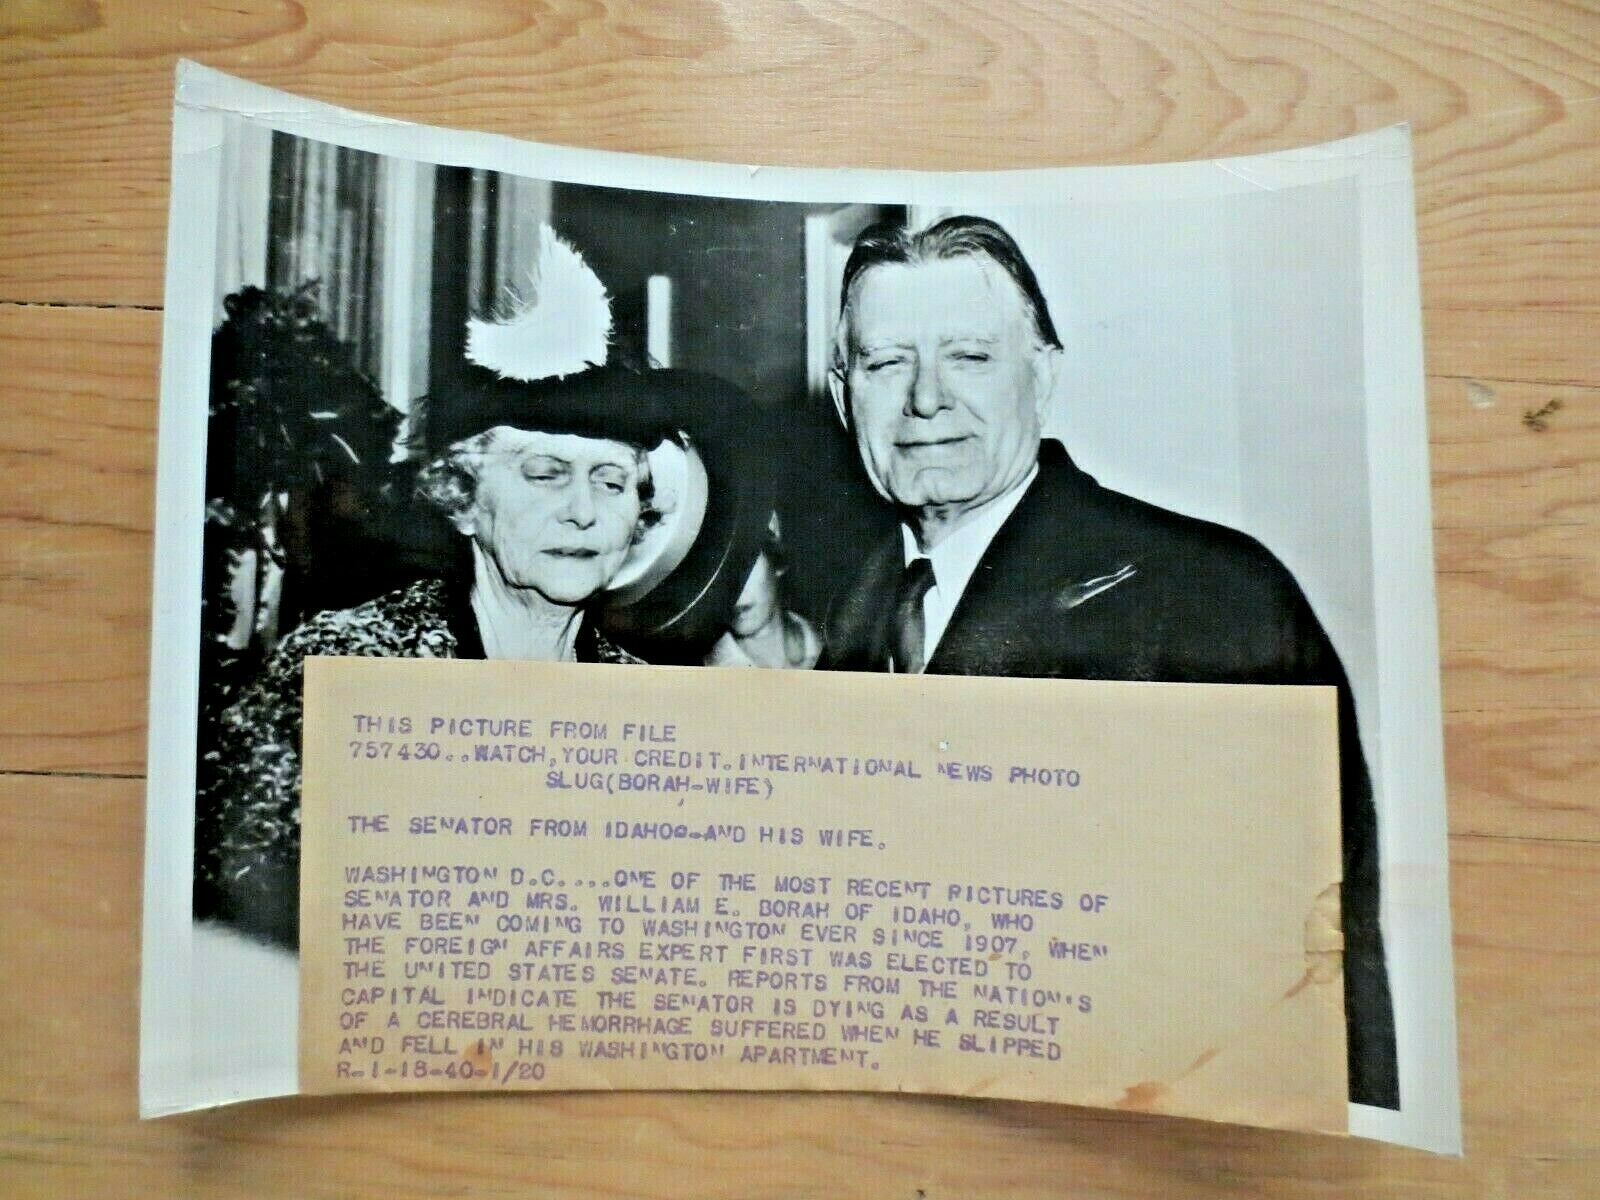 THIS PICTURE FROM FILE
757430..WATCH,YOUR CREDIT.INTERNATIONAL NEWS PHOTO
SLUG(BORAH-WIFE)
THE SENATOR FROM IDAHO--AND HIS WIFE.
WASHINGTON D.C....ONE OF THE MOST RECENT PICTURES OF
SENATOR AND MRS. WILLIAM E. BORAH OF IDAHO, WHO
HAVE BEEN COMING TO WASHINGTON EVER SINCE 1907, WHEN
THE FOREIGN AFFAIRS EXPERT FIRST WAS ELECTED TO
THE UNITED STATES SENATE. REPORTS FROM THE NATION'S
CAPITAL INDICATE THE SENATOR IS DYING AS A RESULT
OF A CEREBRAL HEMORRHAGE SUFFERED WHEN HE SLIPPED
AND FELL IN HIS WASHINGTON APARTMENT.
R-1-18-40-1/20